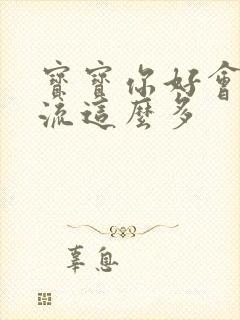 寶寶你好會
流這麼多
辜息